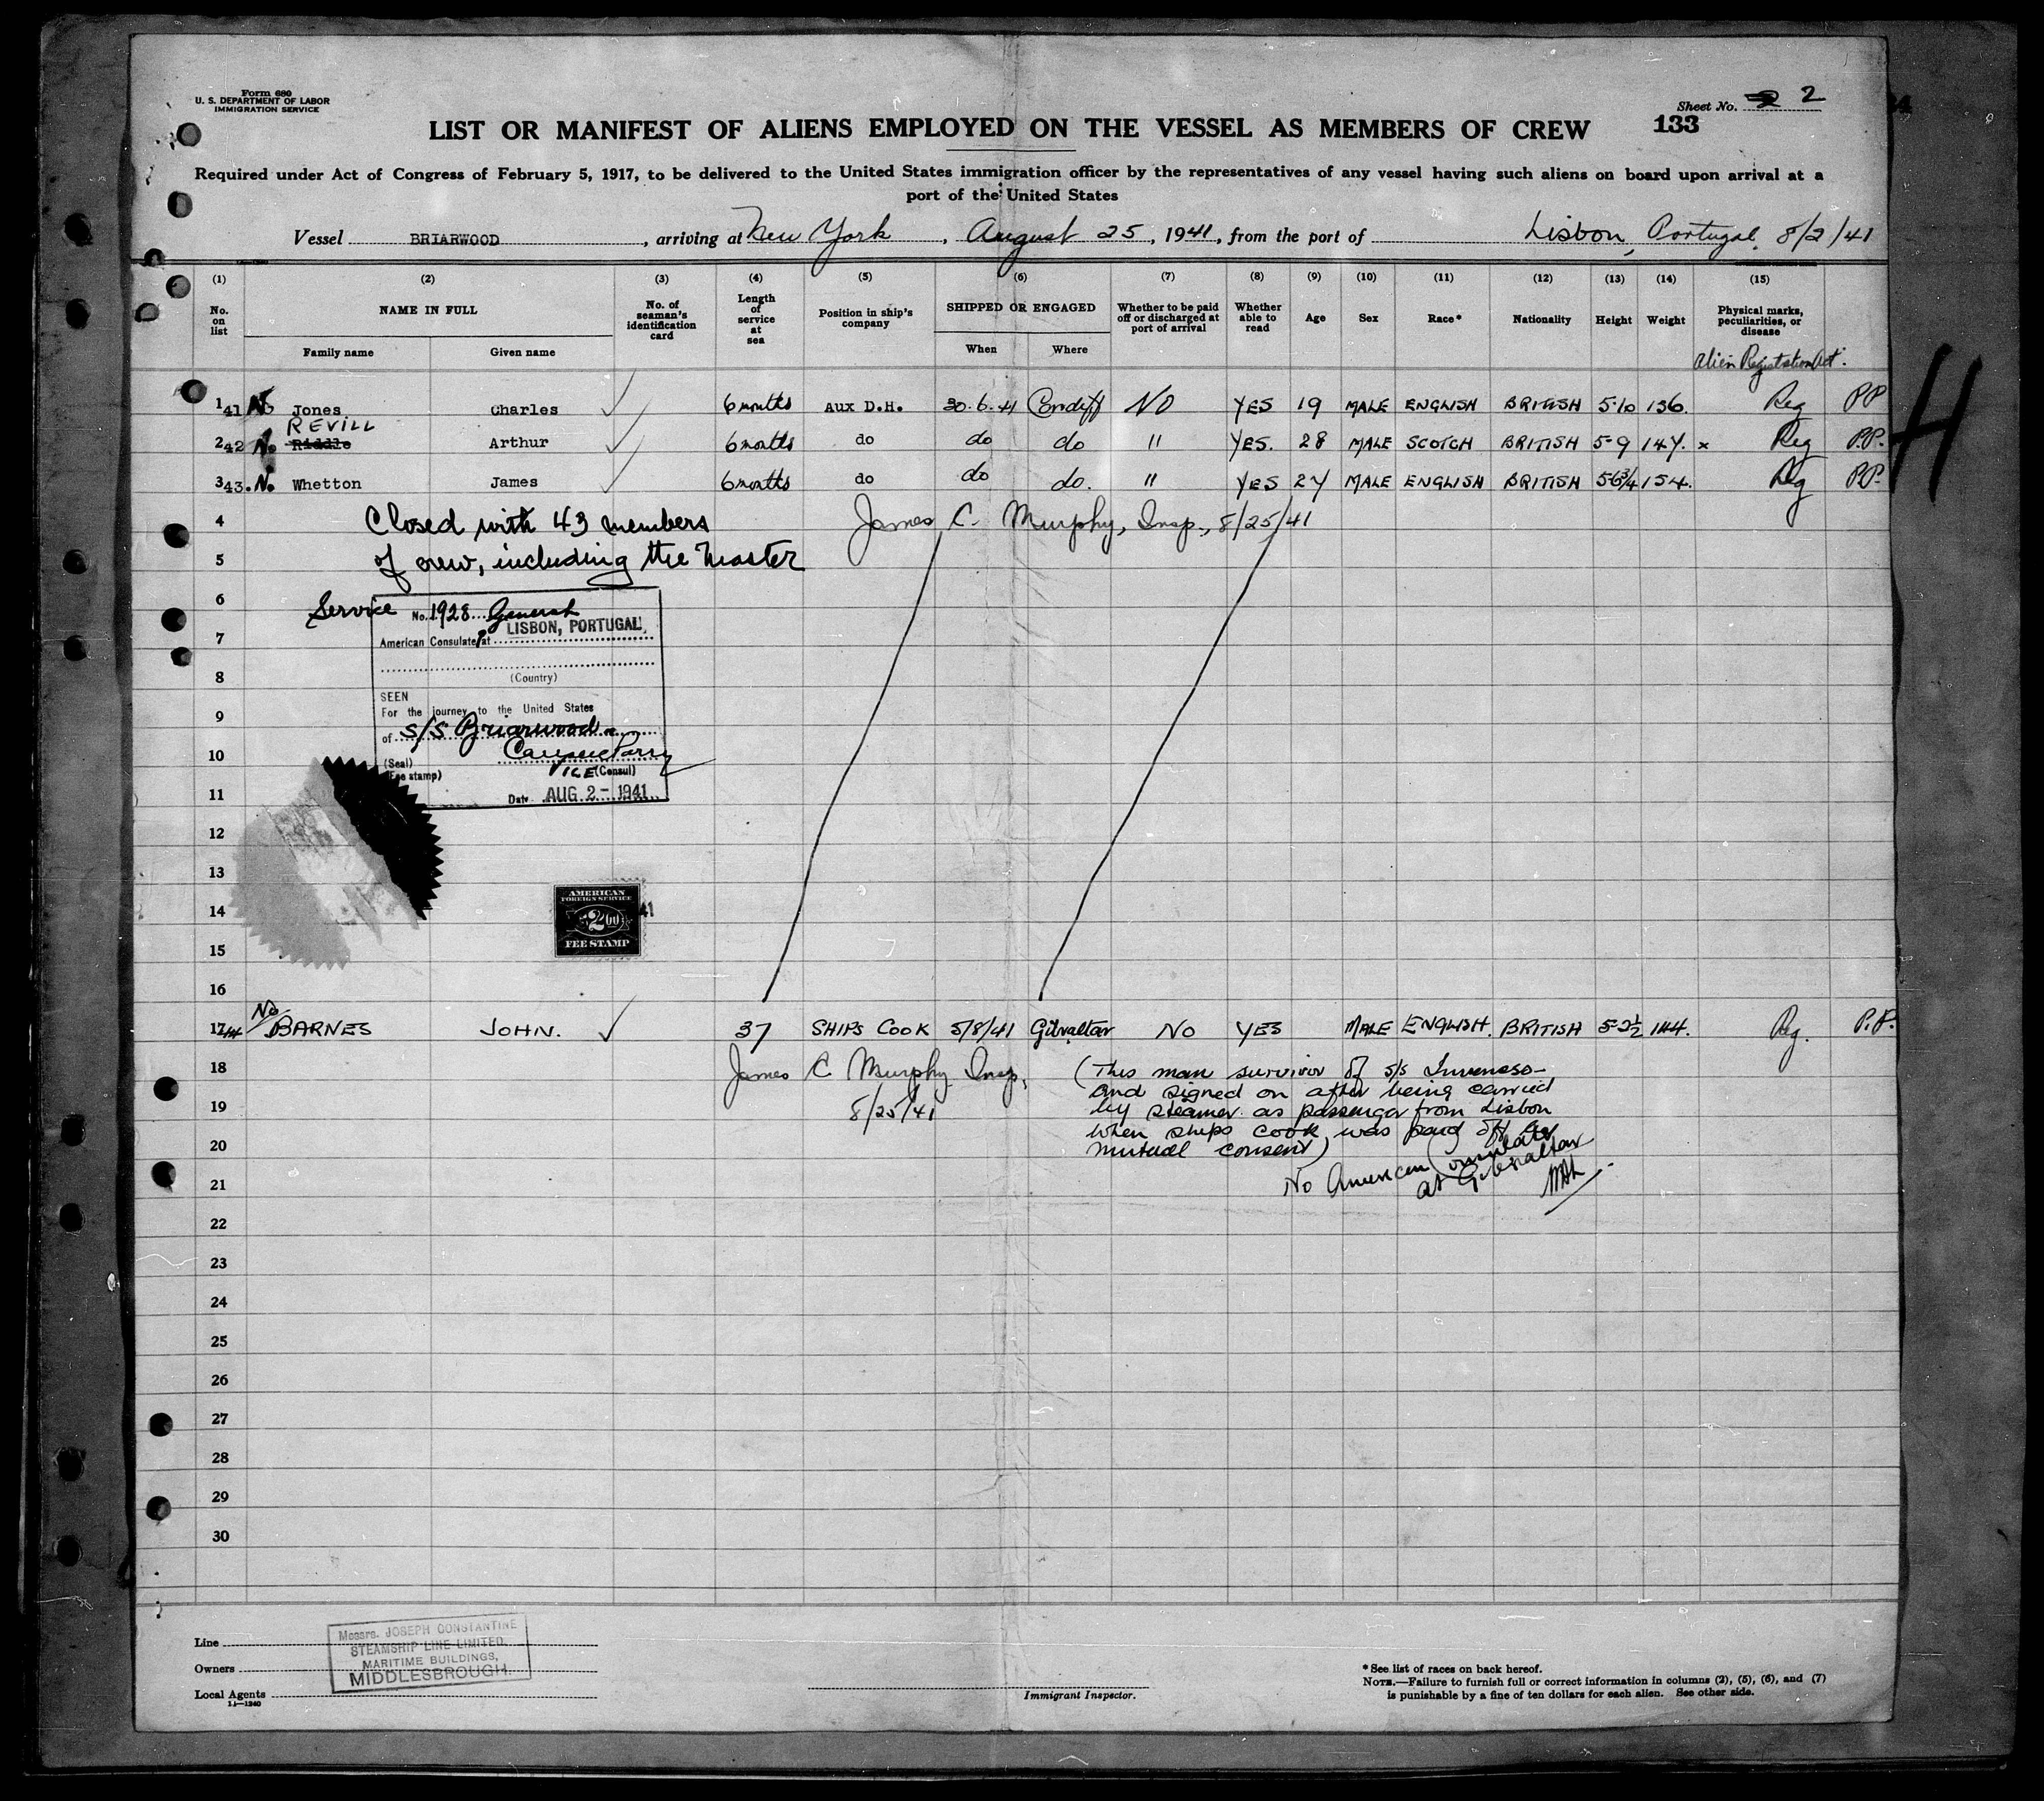 Form 680
U. S. DEPARTMENT OF LABOR
IMMIGRATION SERVICE
Sheet No. 2
133
LIST OR MANIFEST OF ALIENS EMPLOYED ON THE VESSEL AS MEMBERS OF CREW
Required under Act of Congress of February 5, 1917, to be delivered to the United States immigration officer by the representatives of any vessel having such aliens on board upon arrival at a
port of the United States
Vessel BRIARWOOD, arriving at New York, August 25, 1941, from the port of Lisbon, Portugal, 8/2/41
(1) (2) (3) (4) (5) (6) (7) (8) (9) (10) (11) (12) (13) (14) (15)
No. on list NAME IN FULL Family name Given name No. of seaman's identification card Length of service at sea Position in ship's company SHIPPED OR ENGAGED When Where Whether to be paid off or discharged at port of arrival Whether able to read Age Sex Race* Nationality Height Weight Physical marks, peculiarities, or disease
Alien Registration Act.
1 41 No Jones Charles 6 months AUX D.H. 30.6.41 Cardiff NO YES 19 MALE ENGLISH BRITISH 5-10 136. Reg PP
REVILL
2 42 No. Riddle Arthur 6 months do do do " YES. 28 MALE SCOTCH BRITISH 5-9 147. x Reg P.P.
3 43. No. Whetton James 6 months do do do. " YES 27 MALE ENGLISH BRITISH 5-6 3/4 154. Reg P.P.
4 Closed with 43 members James C. Murphy, Insp., 8/25/41
5 of crew, including the Master
6 Service No. 1928 General
LISBON, PORTUGAL
7 American Consulate at
8 (Country)
SEEN
9 For the journey to the United States
of S/S Briarwood
10 (Seal)
(Fee stamp) VICE (Consul)
11 Date AUG 2 - 1941
12
13
AMERICAN
FOREIGN SERVICE
14 2.00 41
FEE STAMP
15
16
17 44 No BARNES JOHN. 37 SHIPS COOK 5/8/41 Gibraltar NO YES MALE ENGLISH. BRITISH 5-2½ 144. Reg. P.P.
18 James C. Murphy Insp. (This man survivor of s/s
and signed on after being carried
19 8/25/41 by steamer as passenger from Lisbon
when ships cook was paid off by
20 mutual consent)
No American Consulate
21 at Gibraltar
22
23
24
25
26
27
28
29
30
Line
Owners
Local Agents
11—1940
Messrs. JOSEPH CONSTANTINE
STEAMSHIP LINE LIMITED,
MARITIME BUILDINGS,
MIDDLESBROUGH.
Immigrant Inspector.
*See list of races on back hereof.
NOTE.—Failure to furnish full or correct information in columns (2), (5), (6), and (7)
is punishable by a fine of ten dollars for each alien. See other side.
H